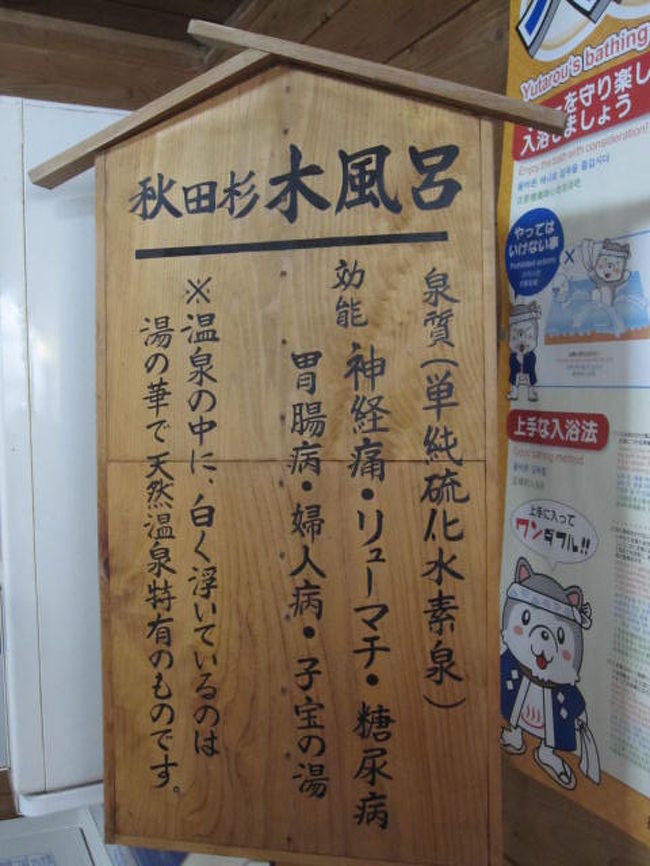 秋田杉木風呂
泉質(単純硫化水素泉)
効能
神経痛・リューマチ・糖尿病
胃腸病・婦人病・子宝の湯
※温泉の中に、白く浮いているのは
湯の華で天然温泉特有のものです。
Yutarou's bathing
を守り楽し
入浴しましょう
Enjoy the bath with consideration!
やっては
いけない事
Prohibited actions
上手な入浴法
Good bathing method
上手に入って
ワンダフル!!